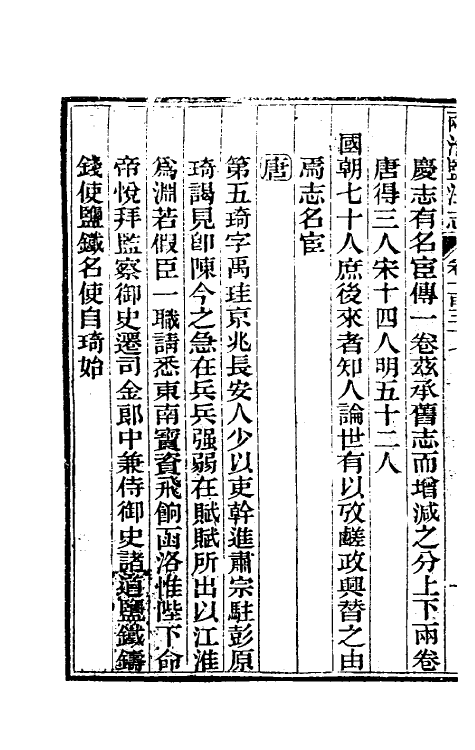 慶志有名宦傳一卷茲承舊志而增減之分上下兩卷
唐得三人宋十四人明五十二人
國朝七十人庶後來者知人論世有以攷鹺政興替之由
焉志名宦
唐
第五琦字禹珪京兆長安人少以吏幹進肅宗駐彭原
琦謁見卽陳今之急在兵兵强弱在賦賦所出以江淮
爲淵若假臣一職請悉東南寶資飛餉函洛惟陛下命
帝悅拜監察御史遷司金郞中兼侍御史諸道鹽鐵鑄
錢使鹽鐵名使自琦始